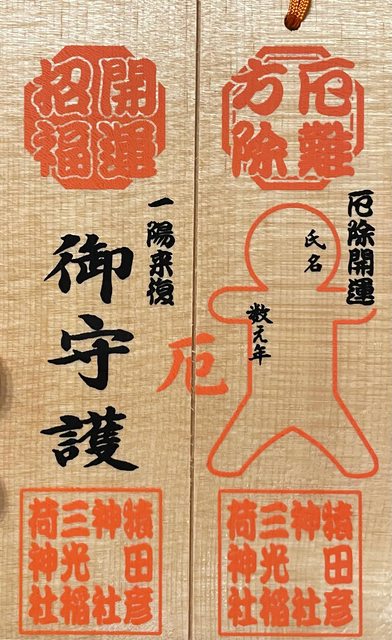 厄難
方除
厄除開運
氏名
数え年
猿田彦
神社
三光稲
荷神社
厄
開運
招福
一陽来復
御守護
猿田彦
神社
三光稲
荷神社